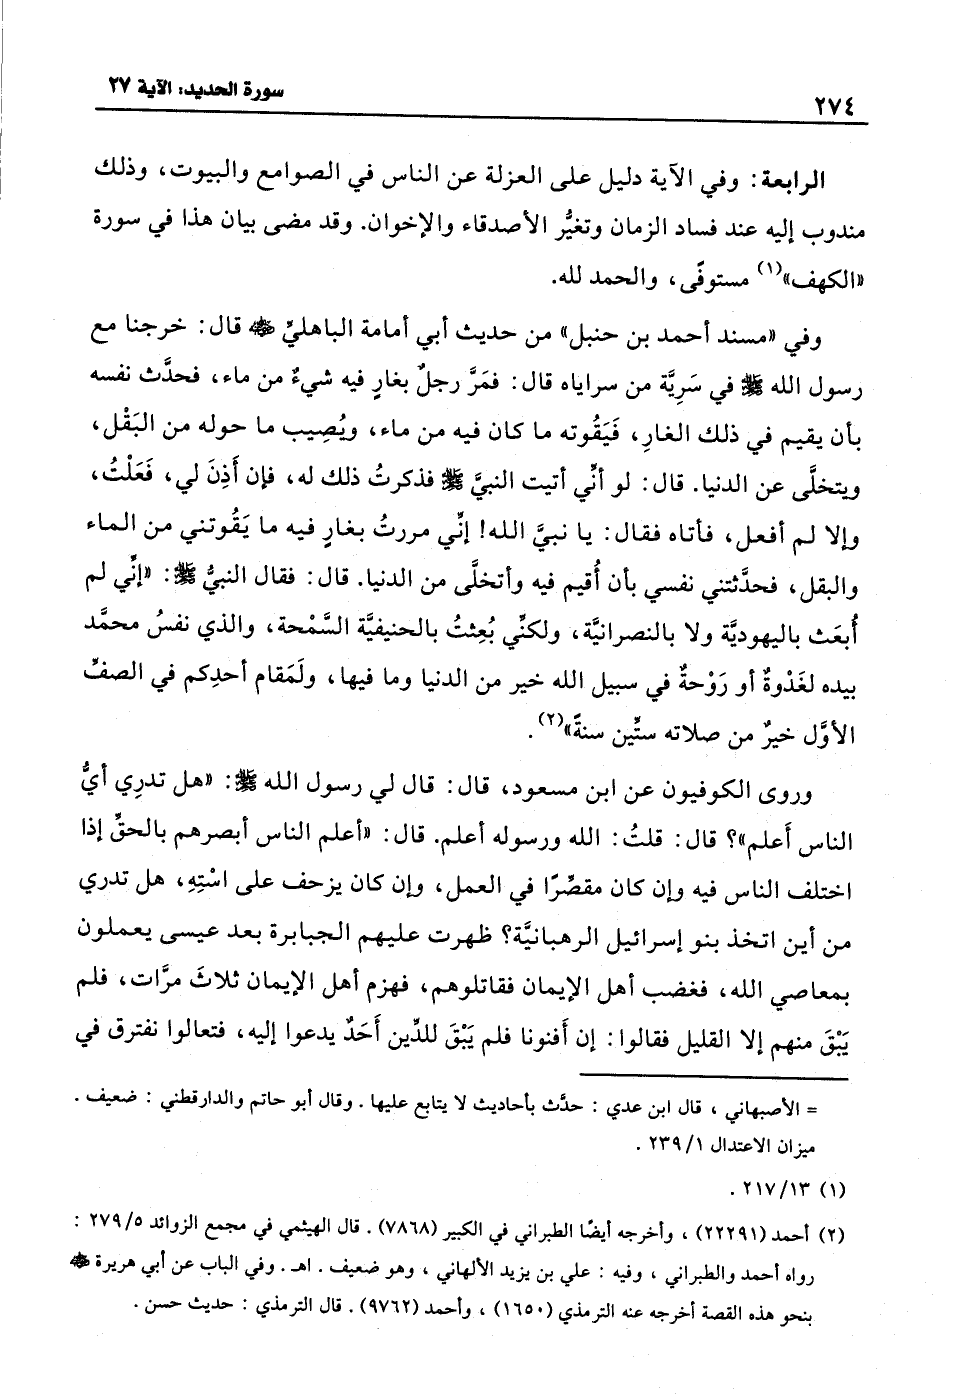 سورة الحديد: الآية ٢٧
٢٧٤
الرابعة: وفي الآية دليل على العزلة عن الناس في الصوامع والبيوت، وذلك
مندوب إليه عند فساد الزمان وتغيُّر الأصدقاء والإخوان. وقد مضى بيان هذا في سورة
«الكهف»(١) مستوفًى، والحمد لله.
وفي «مسند أحمد بن حنبل» من حديث أبي أمامة الباهليّ ﷺ قال: خرجنا مع
رسول الله ﷺ في سَرِيَّة من سراياه قال: فمَرَّ رجلٌ بغارٍ فيه شيءٌ من ماء، فحدَّث نفسه
بأن يقيم في ذلك الغارِ، فَيَقُوته ما كان فيه من ماء، ويُصِيب ما حوله من البَقْل،
ويتخلَّى عن الدنيا. قال: لو أنِّي أتيت النبيَّ ﷺ فذكرتُ ذلك له، فإن أَذِنَ لي، فَعَلْتُ،
وإلا لم أفعل، فأتاه فقال: يا نبيَّ الله! إنِّي مررتُ بغارٍ فيه ما يَقُوتني من الماء
والبقل، فحدَّثتني نفسي بأن أُقيم فيه وأتخلَّى من الدنيا. قال: فقال النبيُّ ﷺ: «إنِّي لم
أُبعَث باليهوديَّة ولا بالنصرانيَّة، ولكنِّي بُعِثتُ بالحنيفيَّة السَّمْحة، والذي نفسُ محمَّد
بيده لغَدْوةٌ أو رَوْحةٌ في سبيل الله خير من الدنيا وما فيها، ولَمَقام أحدِكم في الصفِّ
الأوَّل خيرٌ من صلاته ستِّين سنةً»(٢).
وروى الكوفيون عن ابن مسعود، قال: قال لي رسول الله ﷺ: «هل تدرِي أيُّ
الناس أَعلم»؟ قال: قلتُ: الله ورسوله أعلم. قال: «أعلم الناس أبصرهم بالحقِّ إذا
اختلف الناس فيه وإن كان مقصِّرًا في العمل، وإن كان يزحف على اسْتِهِ، هل تدري
من أين اتخذ بنو إسرائيل الرهبانيَّة؟ ظهرت عليهم الجبابرة بعد عيسى يعملون
بمعاصي الله، فغضب أهل الإيمان فقاتلوهم، فهزم أهل الإيمان ثلاثَ مرَّات، فلم
يَبْقَ منهم إلا القليل فقالوا: إن أَفنونا فلم يَبْقَ للدِّين أَحَدٌ يدعوا إليه، فتعالوا نفترق في
= الأصبهاني ، قال ابن عدي : حدَّث بأحاديث لا يتابع عليها . وقال أبو حاتم والدارقطني : ضعيف .
ميزان الاعتدال ٢٣٩/١ .
(١) ٢١٧/١٣ .
(٢) أحمد (٢٢٢٩١) ، وأخرجه أيضًا الطبراني في الكبير (٧٨٦٨) . قال الهيثمي في مجمع الزوائد ٢٧٩/٥ :
رواه أحمد والطبراني ، وفيه : علي بن يزيد الألهاني ، وهو ضعيف . اهـ . وفي الباب عن أبي هريرة
بنحو هذه القصة أخرجه عنه الترمذي (١٦٥٠) ، وأحمد (٩٧٦٢) . قال الترمذي : حديث حسن .